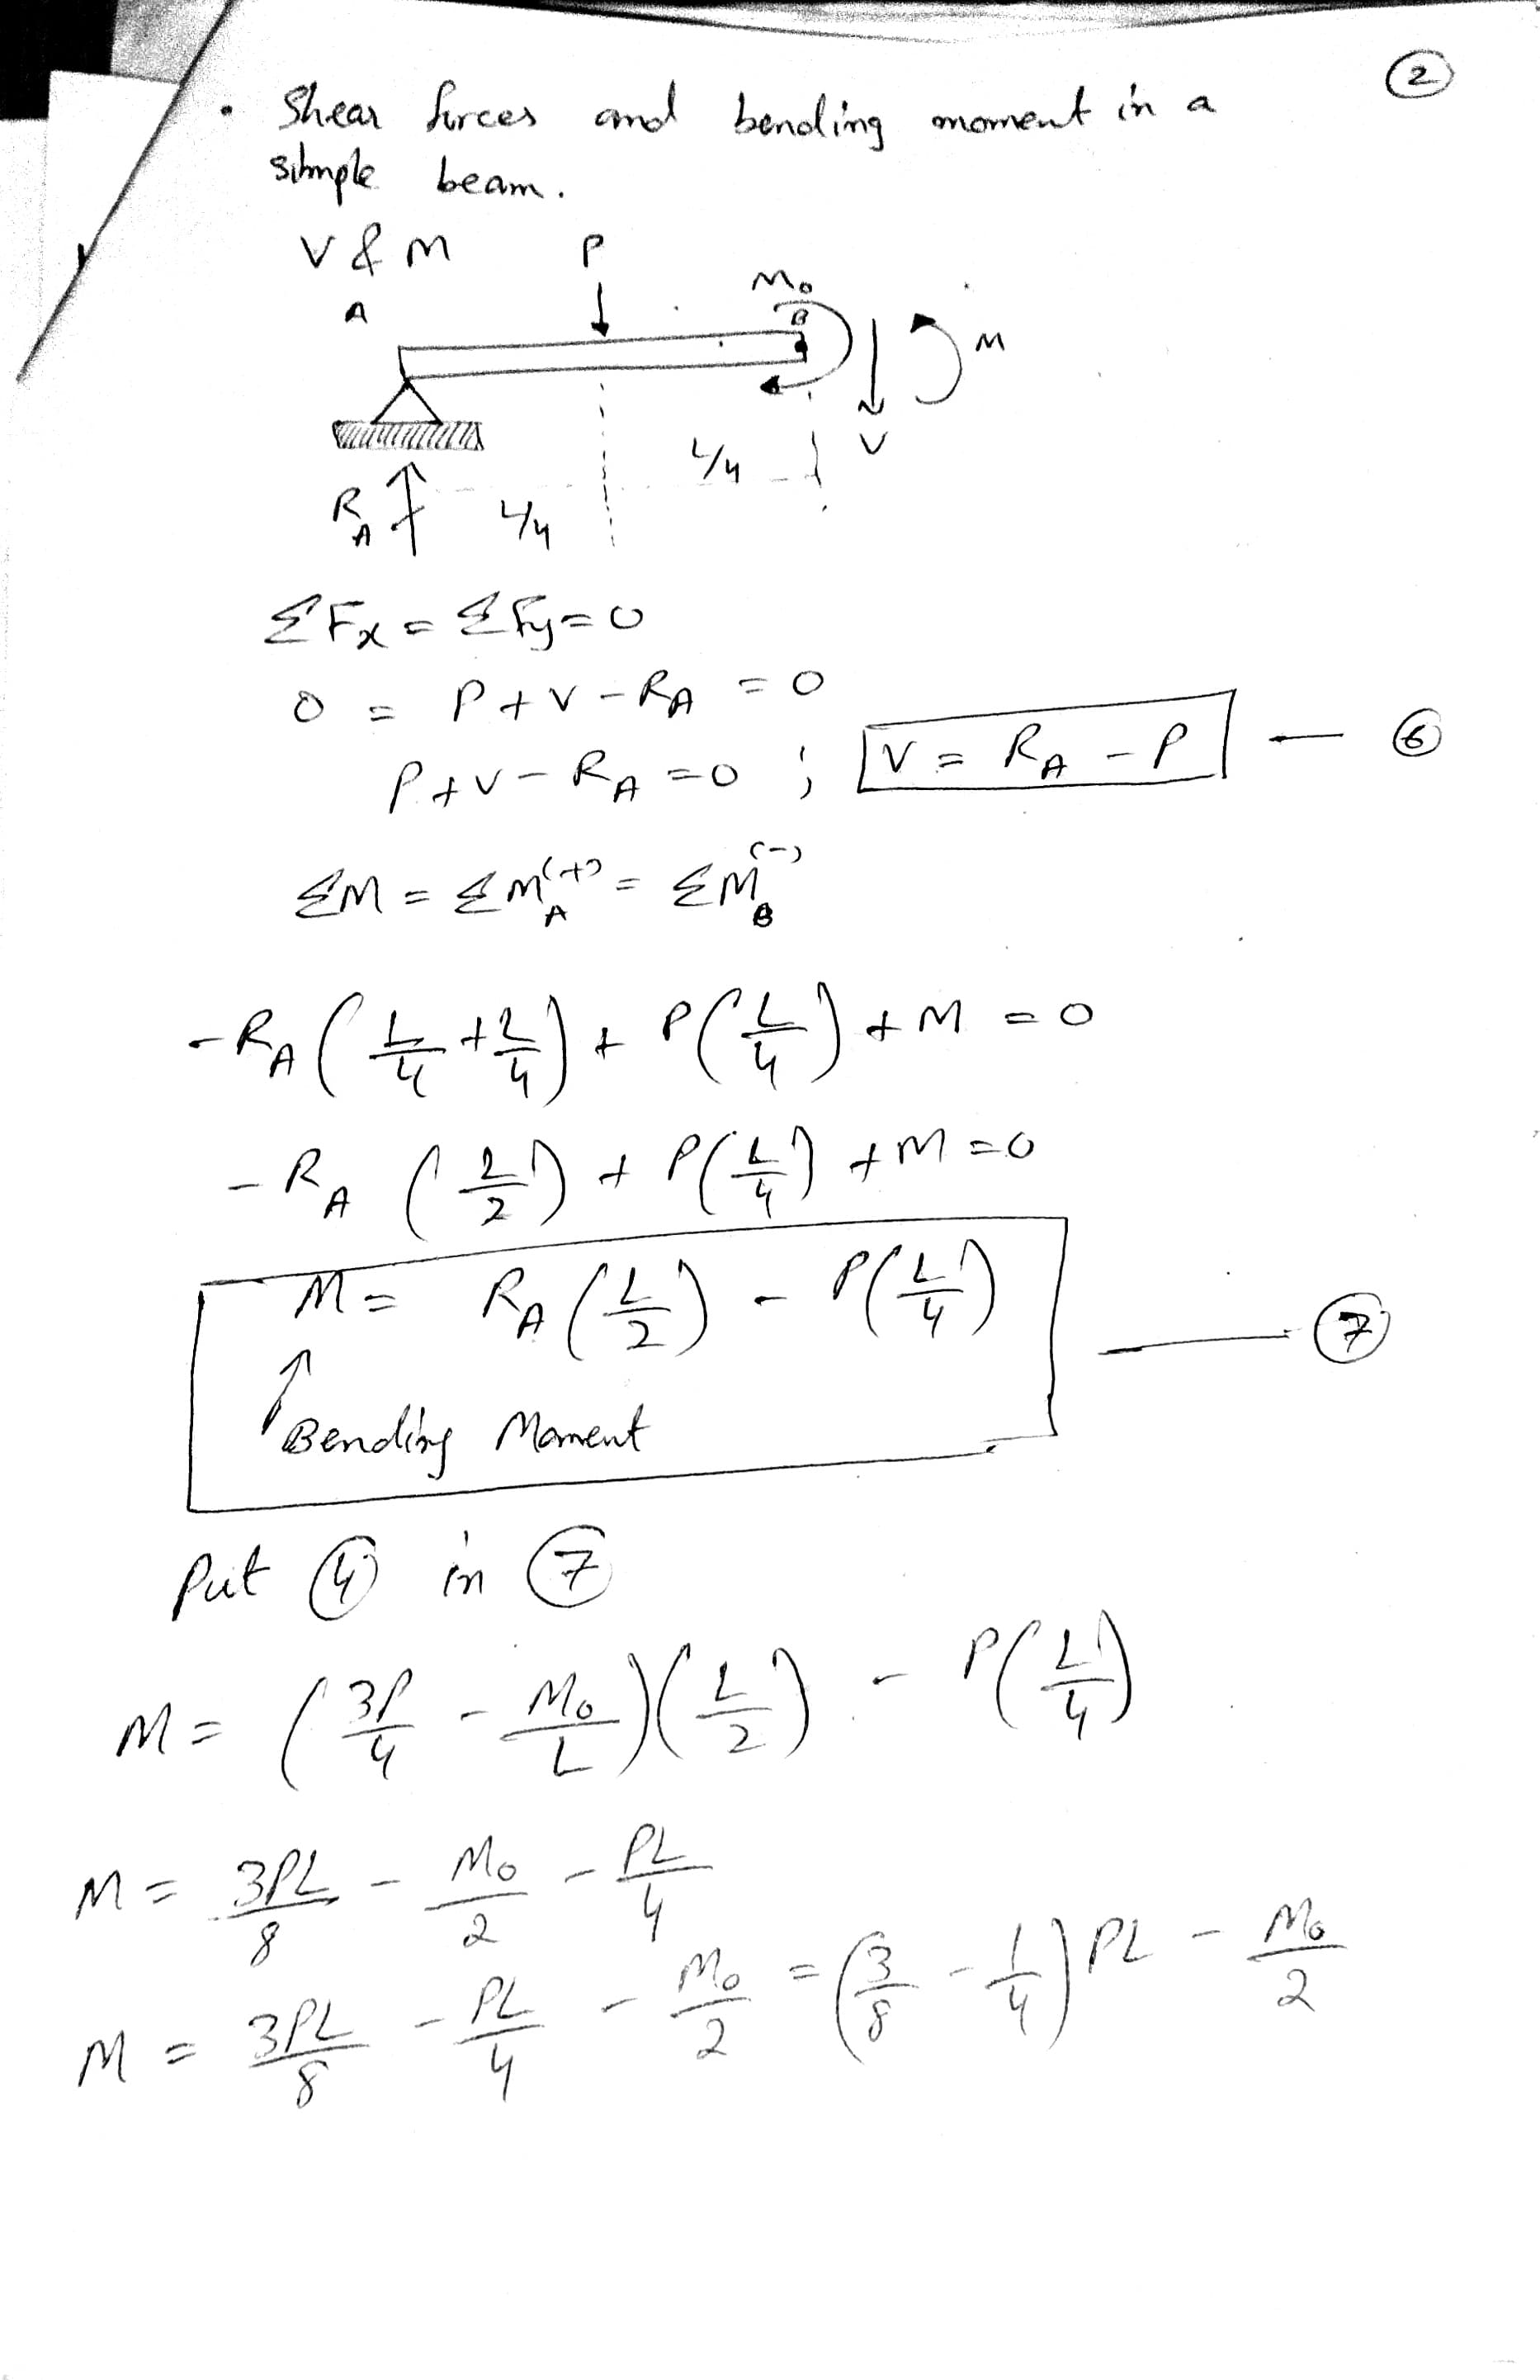 ②
• Shear forces and bending moment in a
simple beam.
V & M
P
A
M₀
B
M
V
L/4
R_A
L/4
ΣFx = ΣFy = 0
0 = P + V - R_A = 0
P + V - R_A = 0 ; V = R_A - P — ⑥
ΣM = ΣM_A^(+) = ΣM_B^(-)
-R_A (L/4 + L/4) + P(L/4) + M = 0
-R_A (L/2) + P(L/4) + M = 0
M = R_A (L/2) - P(L/4) — ⑦
↑
Bending Moment
Put ④ in ⑦
M = (3P/4 - M₀/L)(L/2) - P(L/4)
M = 3PL/8 - M₀/2 - PL/4
M = 3PL/8 - PL/4 - M₀/2 = (3/8 - 1/4) PL - M₀/2